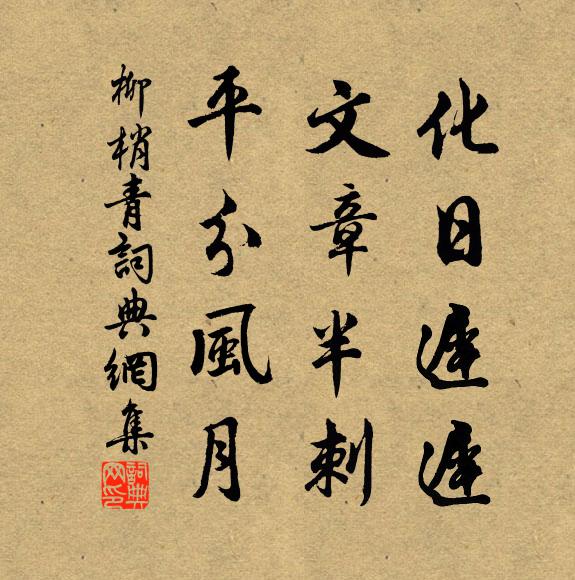 化日遲遲
文章半刺
平分風月
柳梢青詞典網集
詞典網印